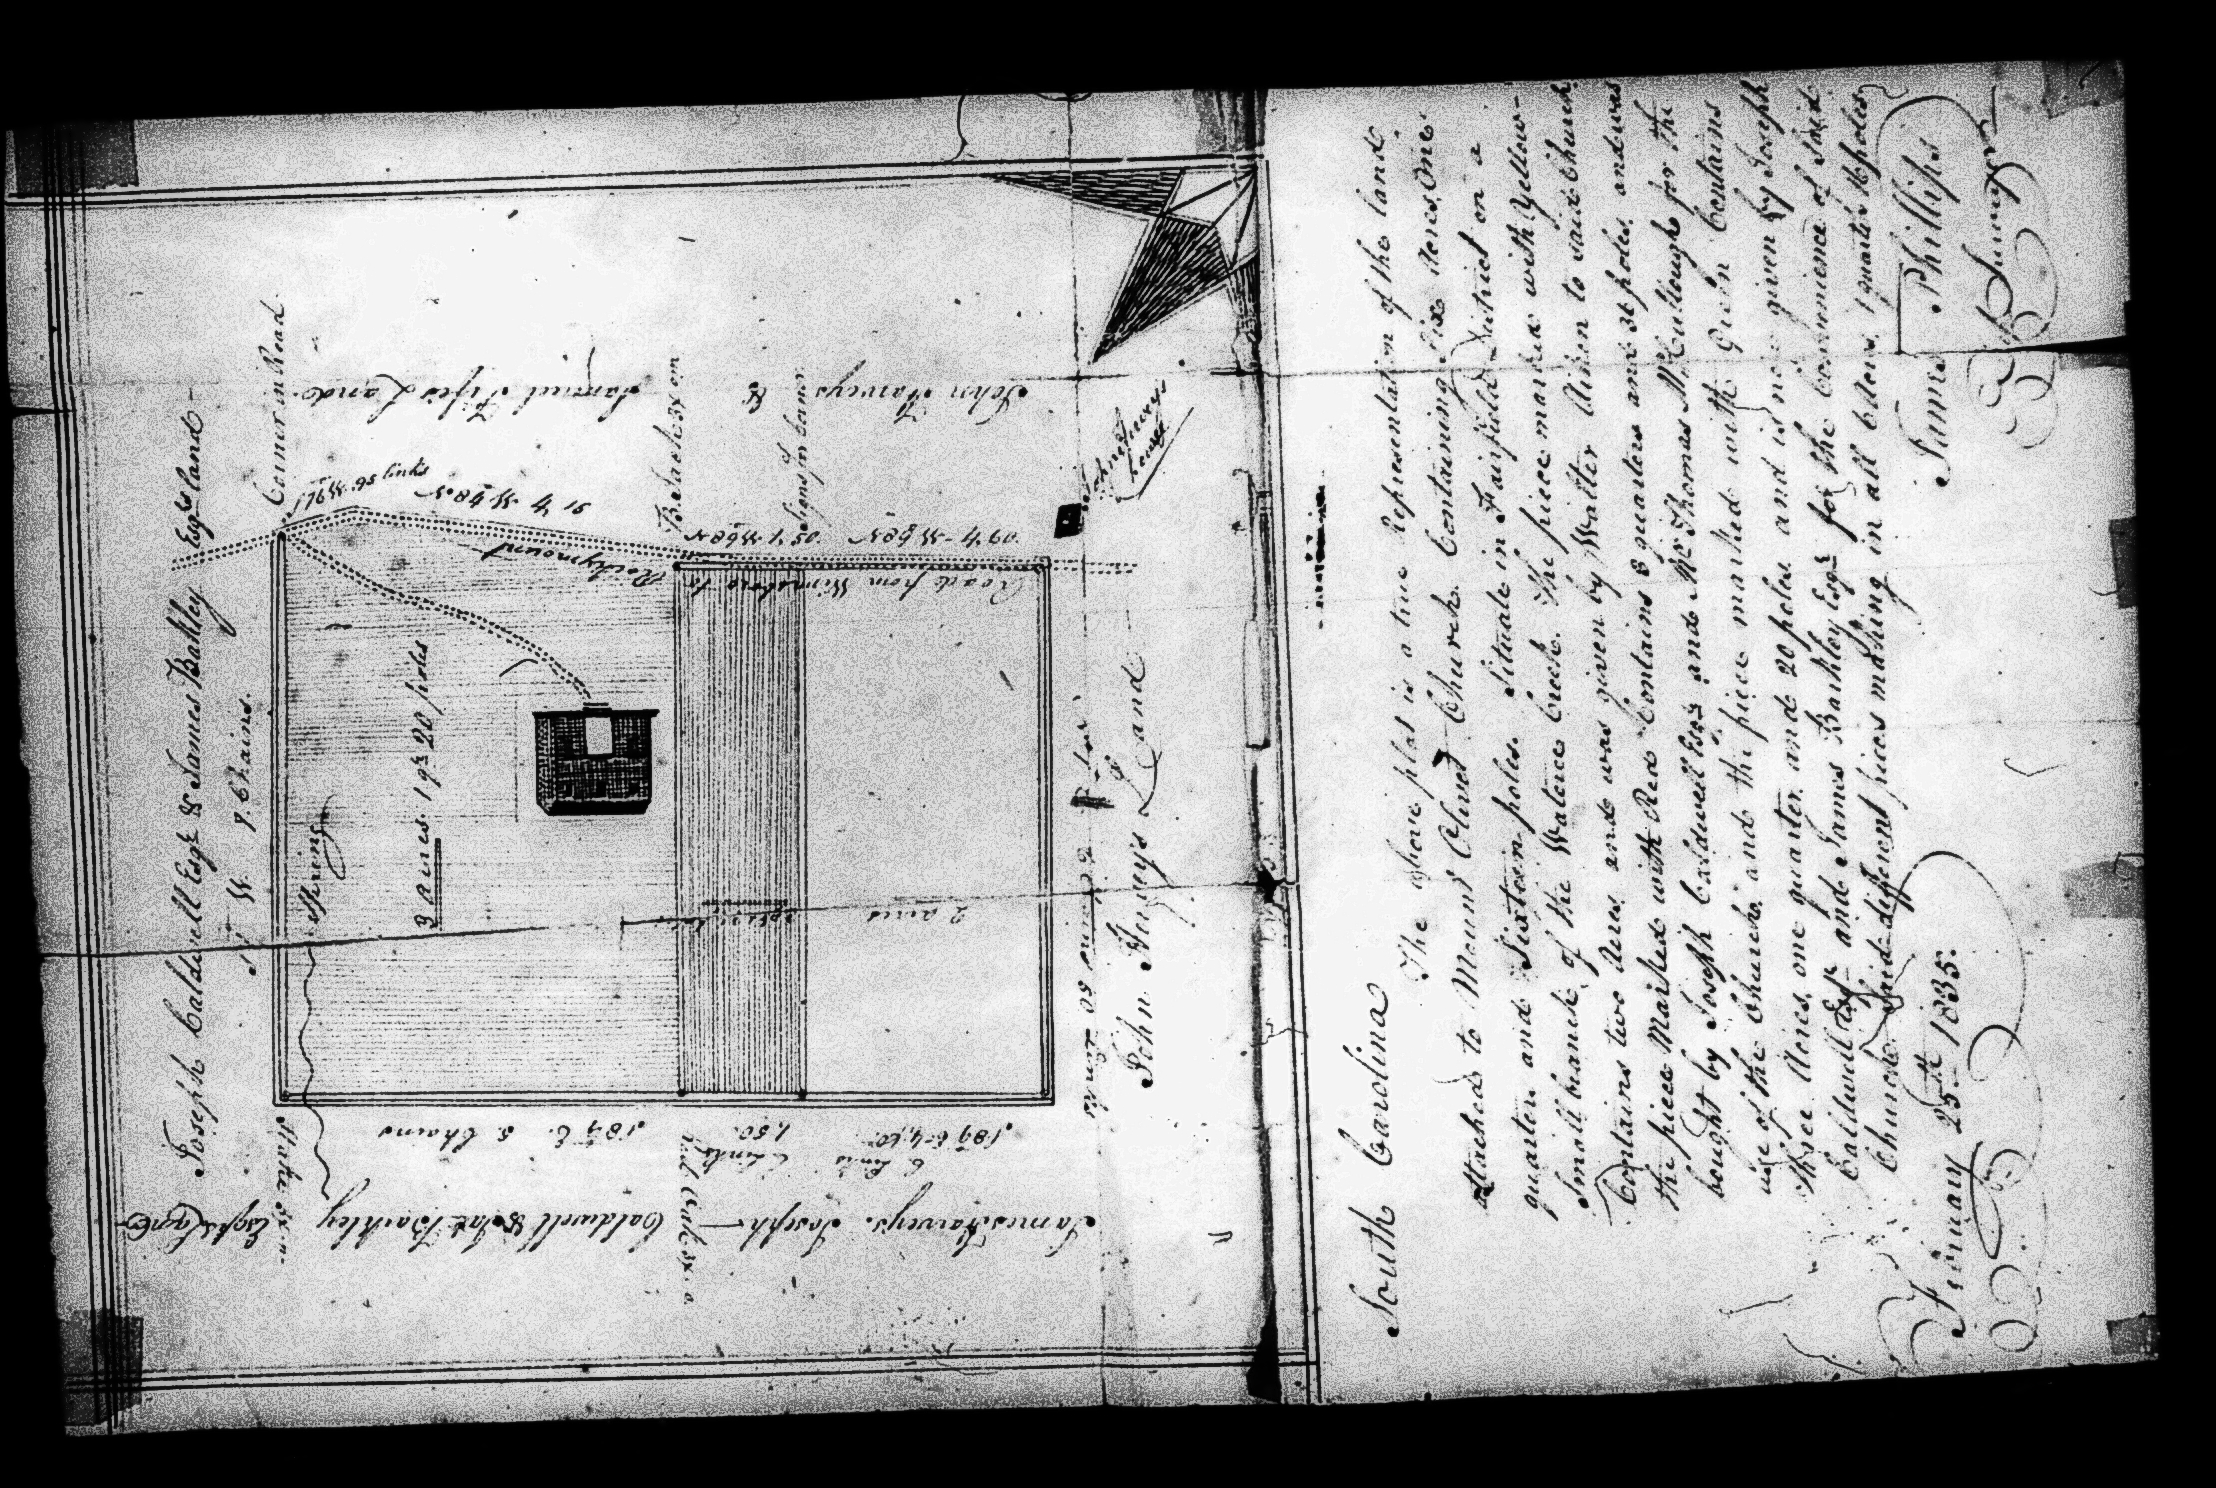 Joseph Caldwell Esqr & James Barkley Esqrs land -
W. 7. Chains.
Corner in Road
Samuel Fifes Land
John Harveys &
Spring
3 acres. 1 qr. 20 poles
2 acres
Road from Winnsboro to
Rockymount
John Harveys
house
John Harveys Land
James Harveys. Joseph Caldwell & Jas Barkley Esqrs Land
Stake 3x n.
5. Chains
South Carolina
The above plat is a true Representation of the land
attached to Mount Olivet Church. Containing Six Acres, One
quarter and Sixteen poles. Situate in Fairfield District on a
Small branch of the Wateree Creek. The piece marked with Yellow-
Contains two Acres and was given by Walter Aiken to said Church
the piece Marked with Red Contains 3 quarters and 36 poles and was
bought by Joseph Caldwell Esqr and Mr Thomas McCullough for the
use of the Church and the piece marked with Green Contains
three Acres, one quarter and 20 poles and is now given by Joseph
Caldwell Esqr and James Barkley Esqr for the Convenience of Said
Church. Said different pieces making in all 6 Acres 1 quarter 16 poles
February 25th 1835.
James Phillips
D. Surveyor